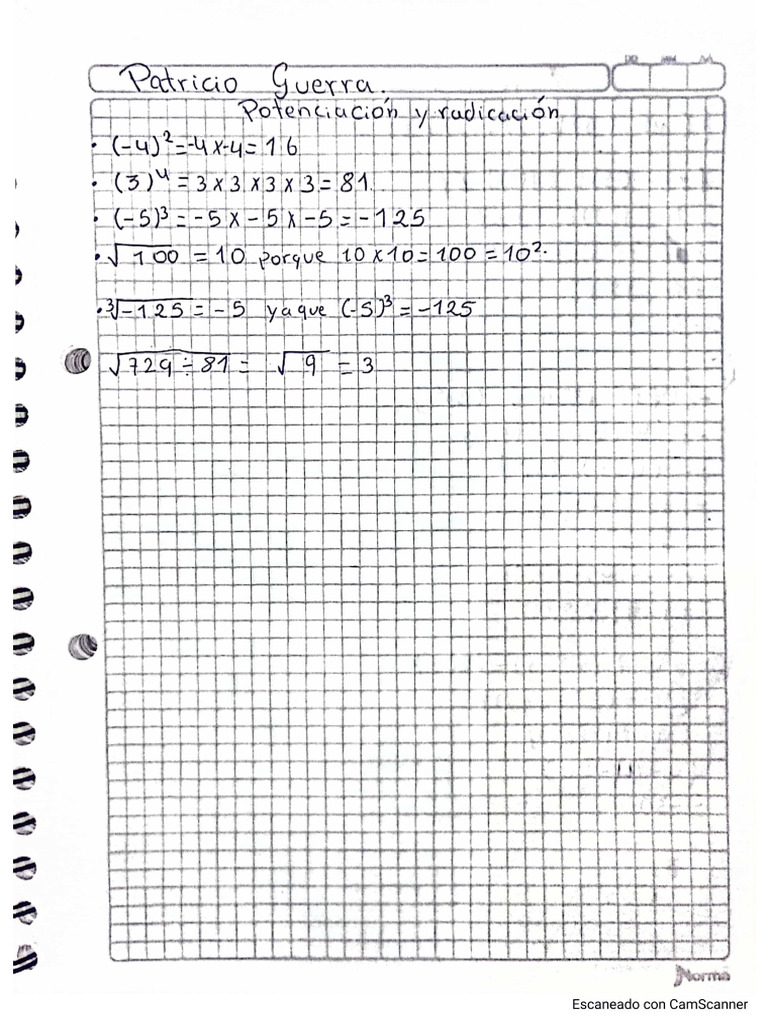 DD MM AA
Patricio Guerra.
Potenciación y radicación
• (-4)² = -4 x -4 = 16
• (3)⁴ = 3 x 3 x 3 x 3 = 81
• (-5)³ = -5 x -5 x -5 = -125
• √100 = 10 porque 10 x 10 = 100 = 10².
• ³√-125 = -5 ya que (-5)³ = -125
√729 ÷ 81 = √9 = 3
Norma
Escaneado con CamScanner